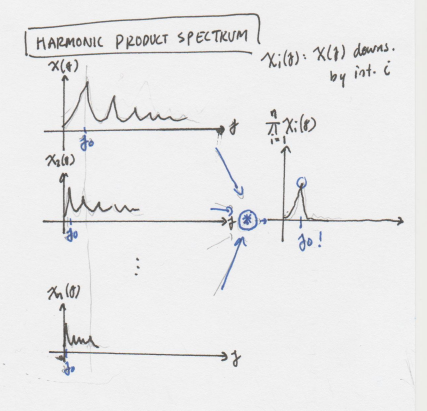 HARMONIC PRODUCT SPECTRUM
Xi(f): X(f) downs.
by int. i
X(f)
f
f0
X2(f)
f
f0
⋮
Xn(f)
f
f0
*
n
π Xi(f)
i=1
f0!